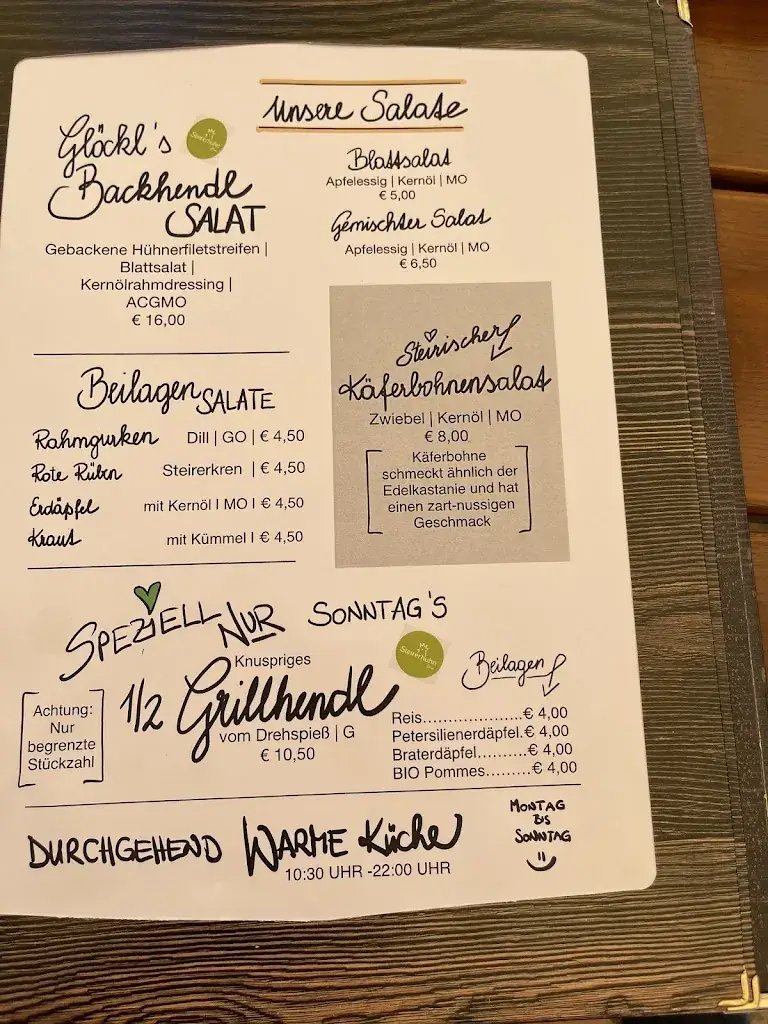 unsere Salate
Glöckl's
Steirerhuhn
Backhendl
SALAT
Gebackene Hühnerfiletstreifen |
Blattsalat |
Kernölrahmdressing |
ACGMO
€ 16,00
Blattsalat
Apfelessig | Kernöl | MO
€ 5,00
Gemischter Salat
Apfelessig | Kernöl | MO
€ 6,50
Steirischer
Käferbohnensalat
Zwiebel | Kernöl | MO
€ 8,00
Käferbohne
schmeckt ähnlich der
Edelkastanie und hat
einen zart-nussigen
Geschmack
Beilagen SALATE
Rahmgurken Dill | GO | € 4,50
Rote Rüben Steirerkren | € 4,50
Erdäpfel mit Kernöl I MO I € 4,50
Kraut mit Kümmel I € 4,50
SPEZIELL NUR SONNTAG'S
Achtung:
Nur
begrenzte
Stückzahl
Knuspriges
1/2 Grillhendl
vom Drehspieß | G
€ 10,50
Steirerhuhn
Beilagen
Reis...................€ 4,00
Petersilienerdäpfel.€ 4,00
Braterdäpfel..........€ 4,00
BIO Pommes.........€ 4,00
DURCHGEHEND WARME Küche
10:30 UHR -22:00 UHR
MONTAG
BIS
SONNTAG